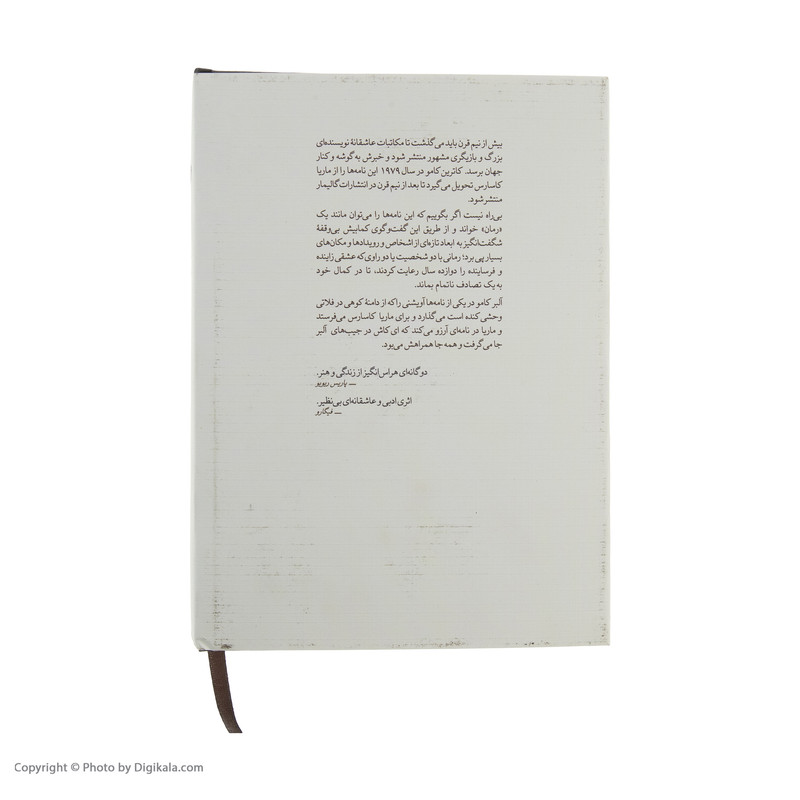 بیش از نیم قرن باید می‌گذشت تا مکاتبات عاشقانهٔ نویسنده‌ای
بزرگ و بازیگری مشهور منتشر شود و خبرش به گوشه و کنار
جهان برسد. کاترین کامو در سال ۱۹۷۹ این نامه‌ها را از ماریا
کاسارس تحویل می‌گیرد تا بعد از نیم قرن در انتشارات گالیمار
منتشر شود.
بی‌راه نیست اگر بگوییم که این نامه‌ها را می‌توان مانند یک
«رمان» خواند و از طریق این گفت‌وگوی کمابیش بی‌وقفهٔ
شگفت‌انگیز به ابعاد تازه‌ای از اشخاص و رویدادها و مکان‌های
بسیار پی برد؛ رمانی با دو شخصیت یا دو راوی که عشقی زاینده
و فرساینده را دوازده سال رعایت کردند، تا در کمال خود
به یک تصادف ناتمام بماند.
آلبر کامو در یکی از نامه‌ها آویشنی را که از دامنهٔ کوهی در فلاتی
وحشی کنده است می‌گذارد و برای ماریا کاسارس می‌فرستد
و ماریا در نامه‌ای آرزو می‌کند که ای کاش در جیب‌های آلبر
جا می‌گرفت و همه جا همراهش می‌بود.
دوگانه‌ای هراس‌انگیز از زندگی و هنر.
— پاریس ریویو
اثری ادبی و عاشقانه‌ای بی‌نظیر.
— فیگارو
Copyright © Photo by Digikala.com